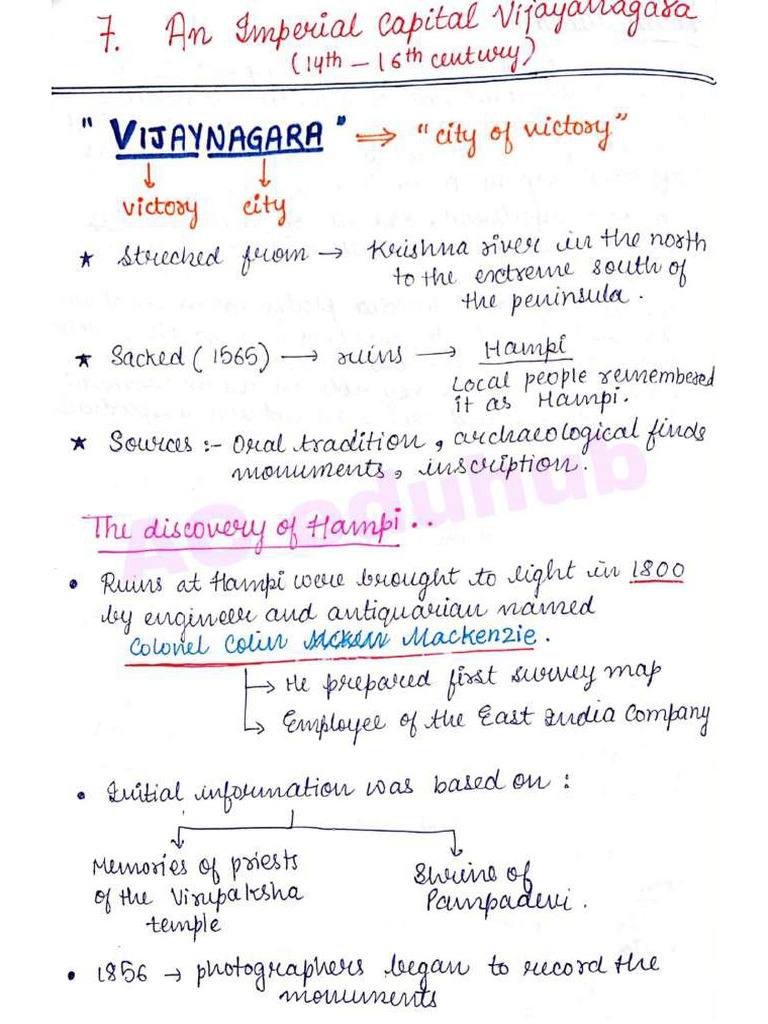 7. An Imperial Capital Vijayanagara
(14th – 16th century)
" VIJAYNAGARA " → "city of victory"
↓ ↓
victory city
★ Streched from → Krishna river in the north
to the extreme south of
the peninsula.
★ Sacked (1565) → ruins → Hampi
Local people remembered
it as Hampi.
★ Sources :- Oral tradition, archaeological finds
monuments, inscription.
AG eduhub
The discovery of Hampi..
• Ruins at Hampi were brought to light in 1800
by engineer and antiquarian named
Colonel Colin Mackenzie.
→ He prepared first survey map
→ Employee of the East India Company
• Initial information was based on :
Memories of priests
of the Virupaksha
temple
Shrine of
Pampadevi.
• 1856 → photographers began to record the
monuments